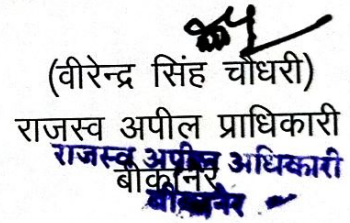 (वीरेन्द्र सिंह चौधरी)
राजस्व अपील प्राधिकारी
राजस्व अपील अधिकारी
बीकानेर
बीकानेर